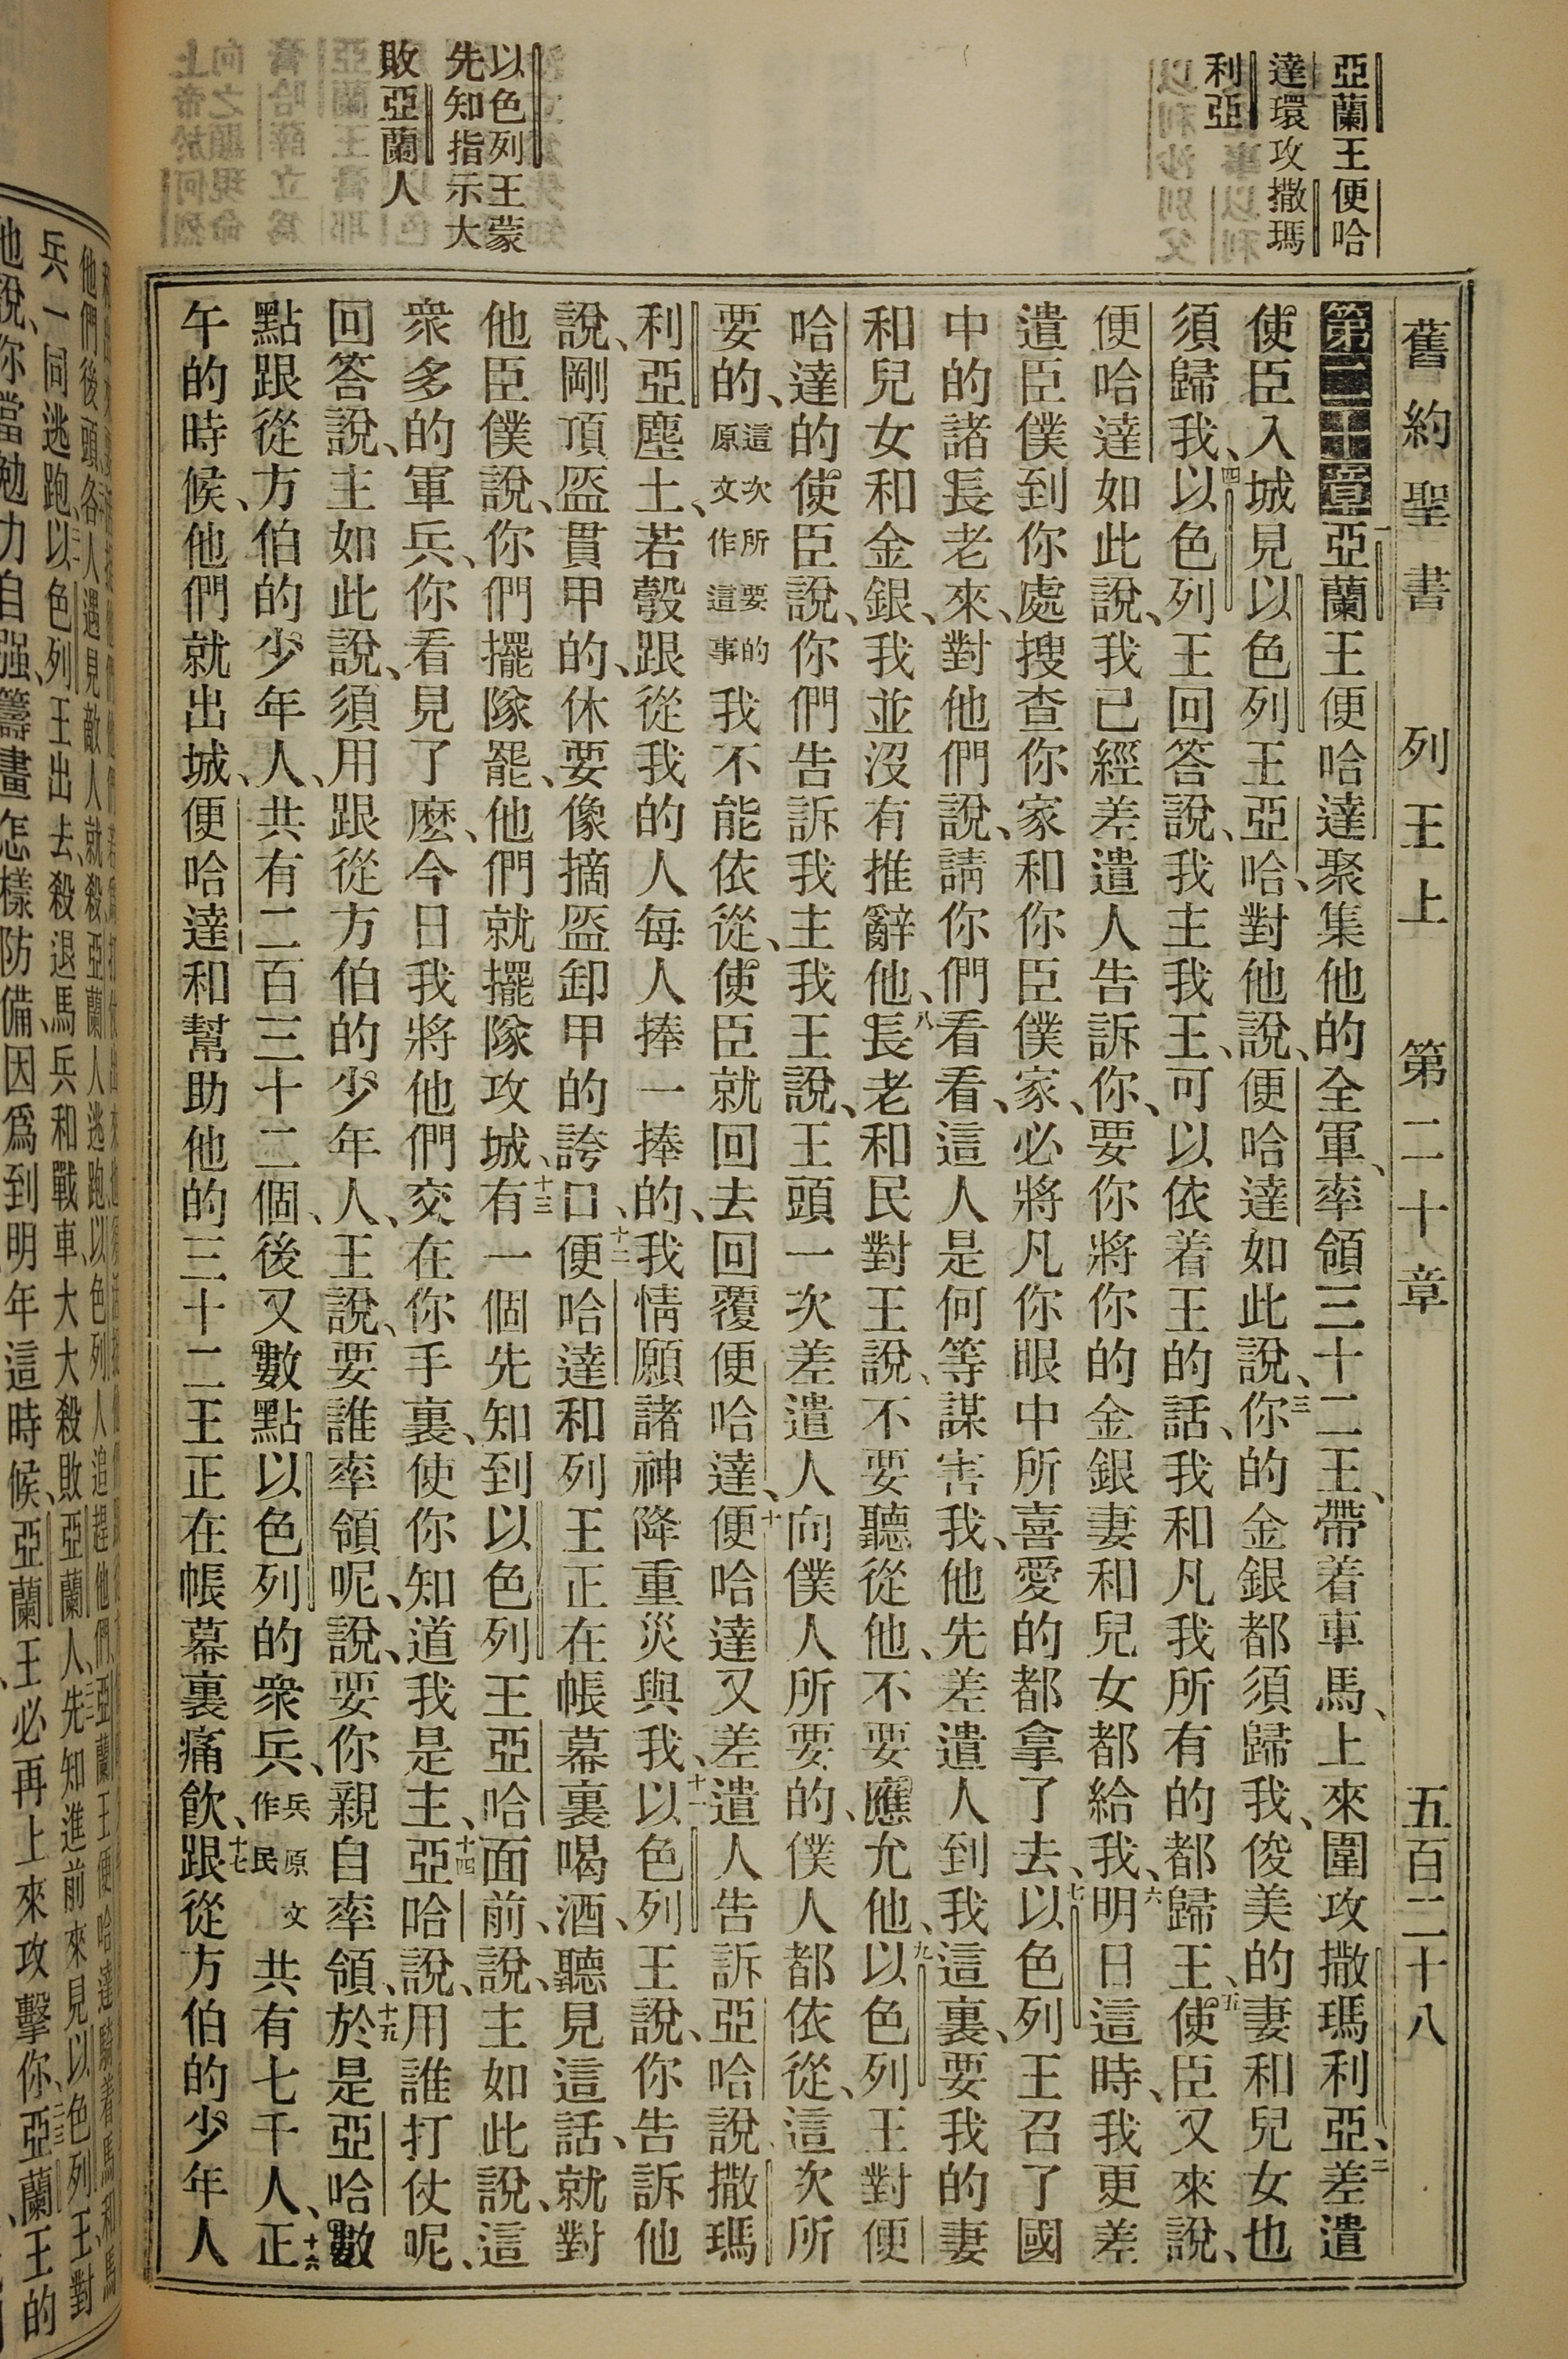 亞蘭王便哈
達環攻撒瑪
利亞
以色列王蒙
先知指示大
敗亞蘭人
舊約聖書 列王上 第二十章 五百二十八
第二十章一亞蘭王便哈達聚集他的全軍、率領三十二王、帶着車馬、上來圍攻撒瑪利亞、二差遣
使臣入城見以色列王亞哈、對他說、便哈達如此說、三你的金銀都須歸我、俊美的妻和兒女也
須歸我、四以色列王回答說、我主我王、可以依着王的話、我和凡我所有的都歸王、五使臣又來說、
便哈達如此說、我已經差遣人告訴你、要你將你的金銀妻和兒女都給我、六明日這時、我更差
遣臣僕到你處搜查你家和你臣僕家、必將凡你眼中所喜愛的都拿了去、七以色列王召了國
中的諸長老來、對他們說、請你們看看、這人是何等謀害我、他先差遣人到我這裏、要我的妻
和兒女和金銀、我並沒有推辭他、八長老和民對王說、不要聽從他、不要應允他、九以色列王對便
哈達的使臣說、你們告訴我主我王說、王頭一次差遣人向僕人所要的、僕人都依從、這次所
要的、這次所要的原文作這事我不能依從、使臣就回去回覆便哈達、十便哈達又差遣人告訴亞哈說、撒瑪
利亞塵土、若彀跟從我的人每人捧一捧的、我情願諸神降重災與我、十一以色列王說、你告訴他
說、剛頂盔貫甲的、休要像摘盔卸甲的誇口、十二便哈達和列王正在帳幕裏喝酒、聽見這話、就對
他臣僕說、你們擺隊罷、他們就擺隊攻城、十三有一個先知到以色列王亞哈面前、說、主如此說、這
衆多的軍兵、你看見了麼、今日我將他們交在你手裏、使你知道我是主、十四亞哈說、用誰打仗呢、
回答說、主如此說、須用跟從方伯的少年人、王說、要誰率領呢、說、要你親自率領、十五於是亞哈數
點跟從方伯的少年人、共有二百三十二個、後又數點以色列的衆兵、兵原文作民共有七千人、十六正
午的時候、他們就出城、便哈達和幫助他的三十二王正在帳幕裏痛飲、十七跟從方伯的少年人
兵一同逃跑、以色列王出去、殺退馬兵和戰車、大大殺敗亞蘭人、先知進前來見以色列王、對
他說、你當勉力自强、籌畫怎樣防備、因爲到明年這時候、亞蘭王必再上來攻擊你、亞蘭王的